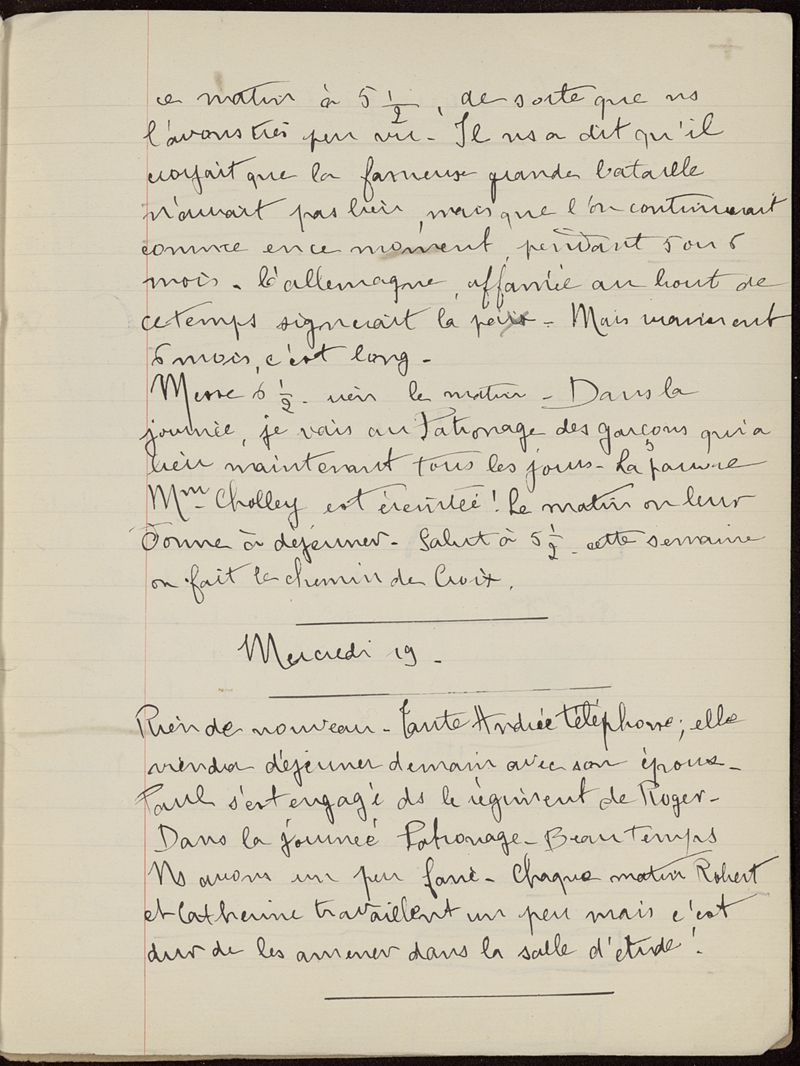 ce matin à 5 1/2, de sorte que ns
l'avons très peu vu - Il ns a dit qu'il
croyait que la fameuse grande bataille
n'aurait pas lieu, mais que l'on continuerait
comme en ce moment, pendant 5 ou 6
mois - l'allemagne, affamée au bout de
ce temps signerait la paix - Mais vraiment
6 mois, c'est long -
Messe 6 1/2 - rien le matin - Dans la
journée, je vais au Patronage des garçons qui a
lieu maintenant tous les jours - La pauvre
Mme Cholley est éreintée ! Le matin on leur
donne à déjeuner - Salut à 5 1/2 - cette semaine
on fait le chemin de Croix.
Mercredi 19 -
Rien de nouveau - Tante Andrée téléphone ; elle
viendra déjeuner demain avec son époux -
Paul s'est engagé ds le régiment de Roger -
Dans la journée Patronage - Beau temps
Ns avons un peu fané - Chaque matin Robert
et Catherine travaillent un peu mais c'est
dur de les amener dans la salle d'étude !